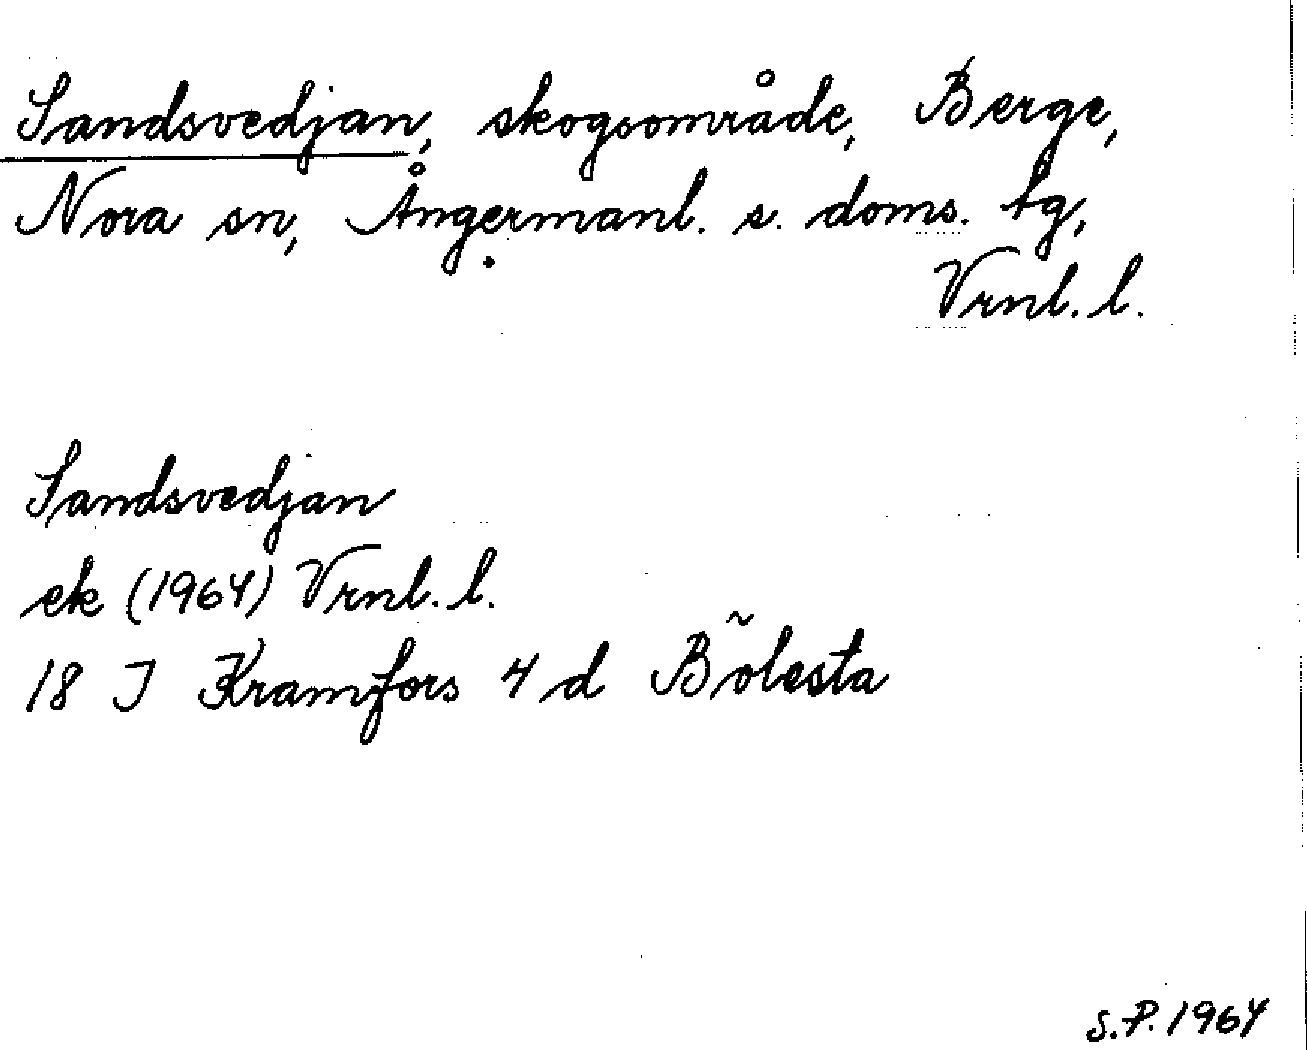 Sandsvedjan, skogsområde, Berge,
Nora sn, Ångermanl. s. doms. tg,
Vrnl. l.
Sandsvedjan
ek (1964) Vrnl. l.
18 I Kramfors 4 d Bölesta
S.P. 1964